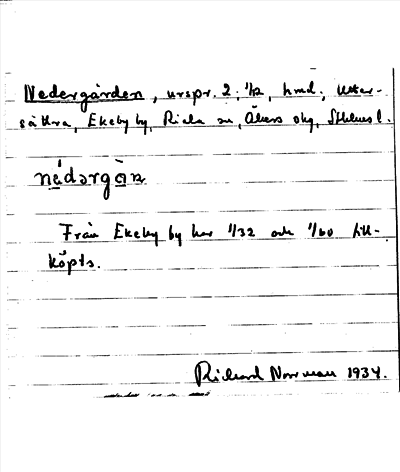 Nedergården, urspr. 2; 1/2, hmd; Utter-
sättra, Ekeby by, Riala sn, Åkers skg, Sthlms l.
nédərgȧ̀n
Från Ekeby by har 1/32 och 1/60 till-
köpts.
Richard Norrman 1934.